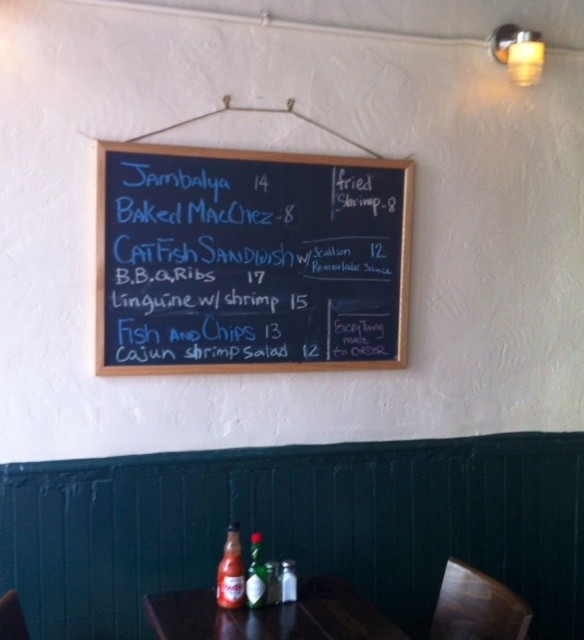 Jambalya 14
Baked MacChez - 8
CatFish SANDWish w/ Scallion Remoulade Sauce 12
B.B.Q. Ribs 17
Linguine w/ shrimp 15
Fish AND Chips 13
Cajun shrimp Salad 12
fried
Shrimp - 8
EveryThing
made
to ORDER